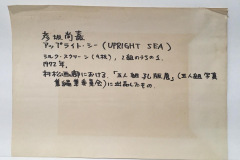 彦坂尚嘉
アップライト・シー（UPRIGHT SEA）
シルク・スクリーン（4枚）、2組のうちの1.
1972年.
村松画廊における、「五人組写真展」（五人組写真
集編集委員会）に出品したもの.